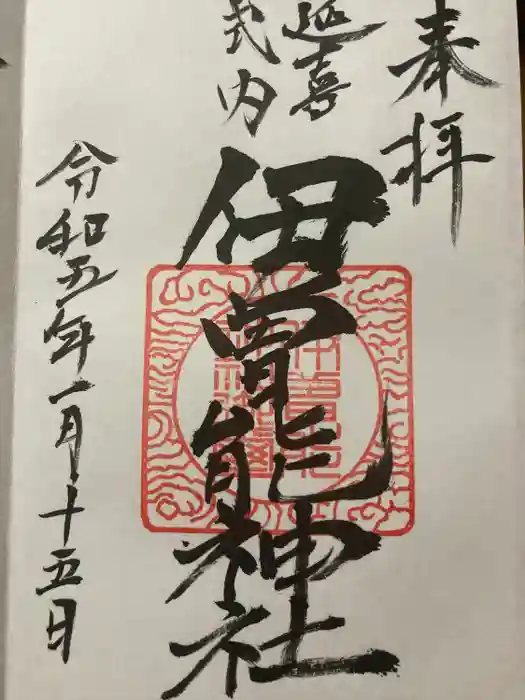 奉拝
延喜
式内
伊曽能神社
令和五年一月十五日